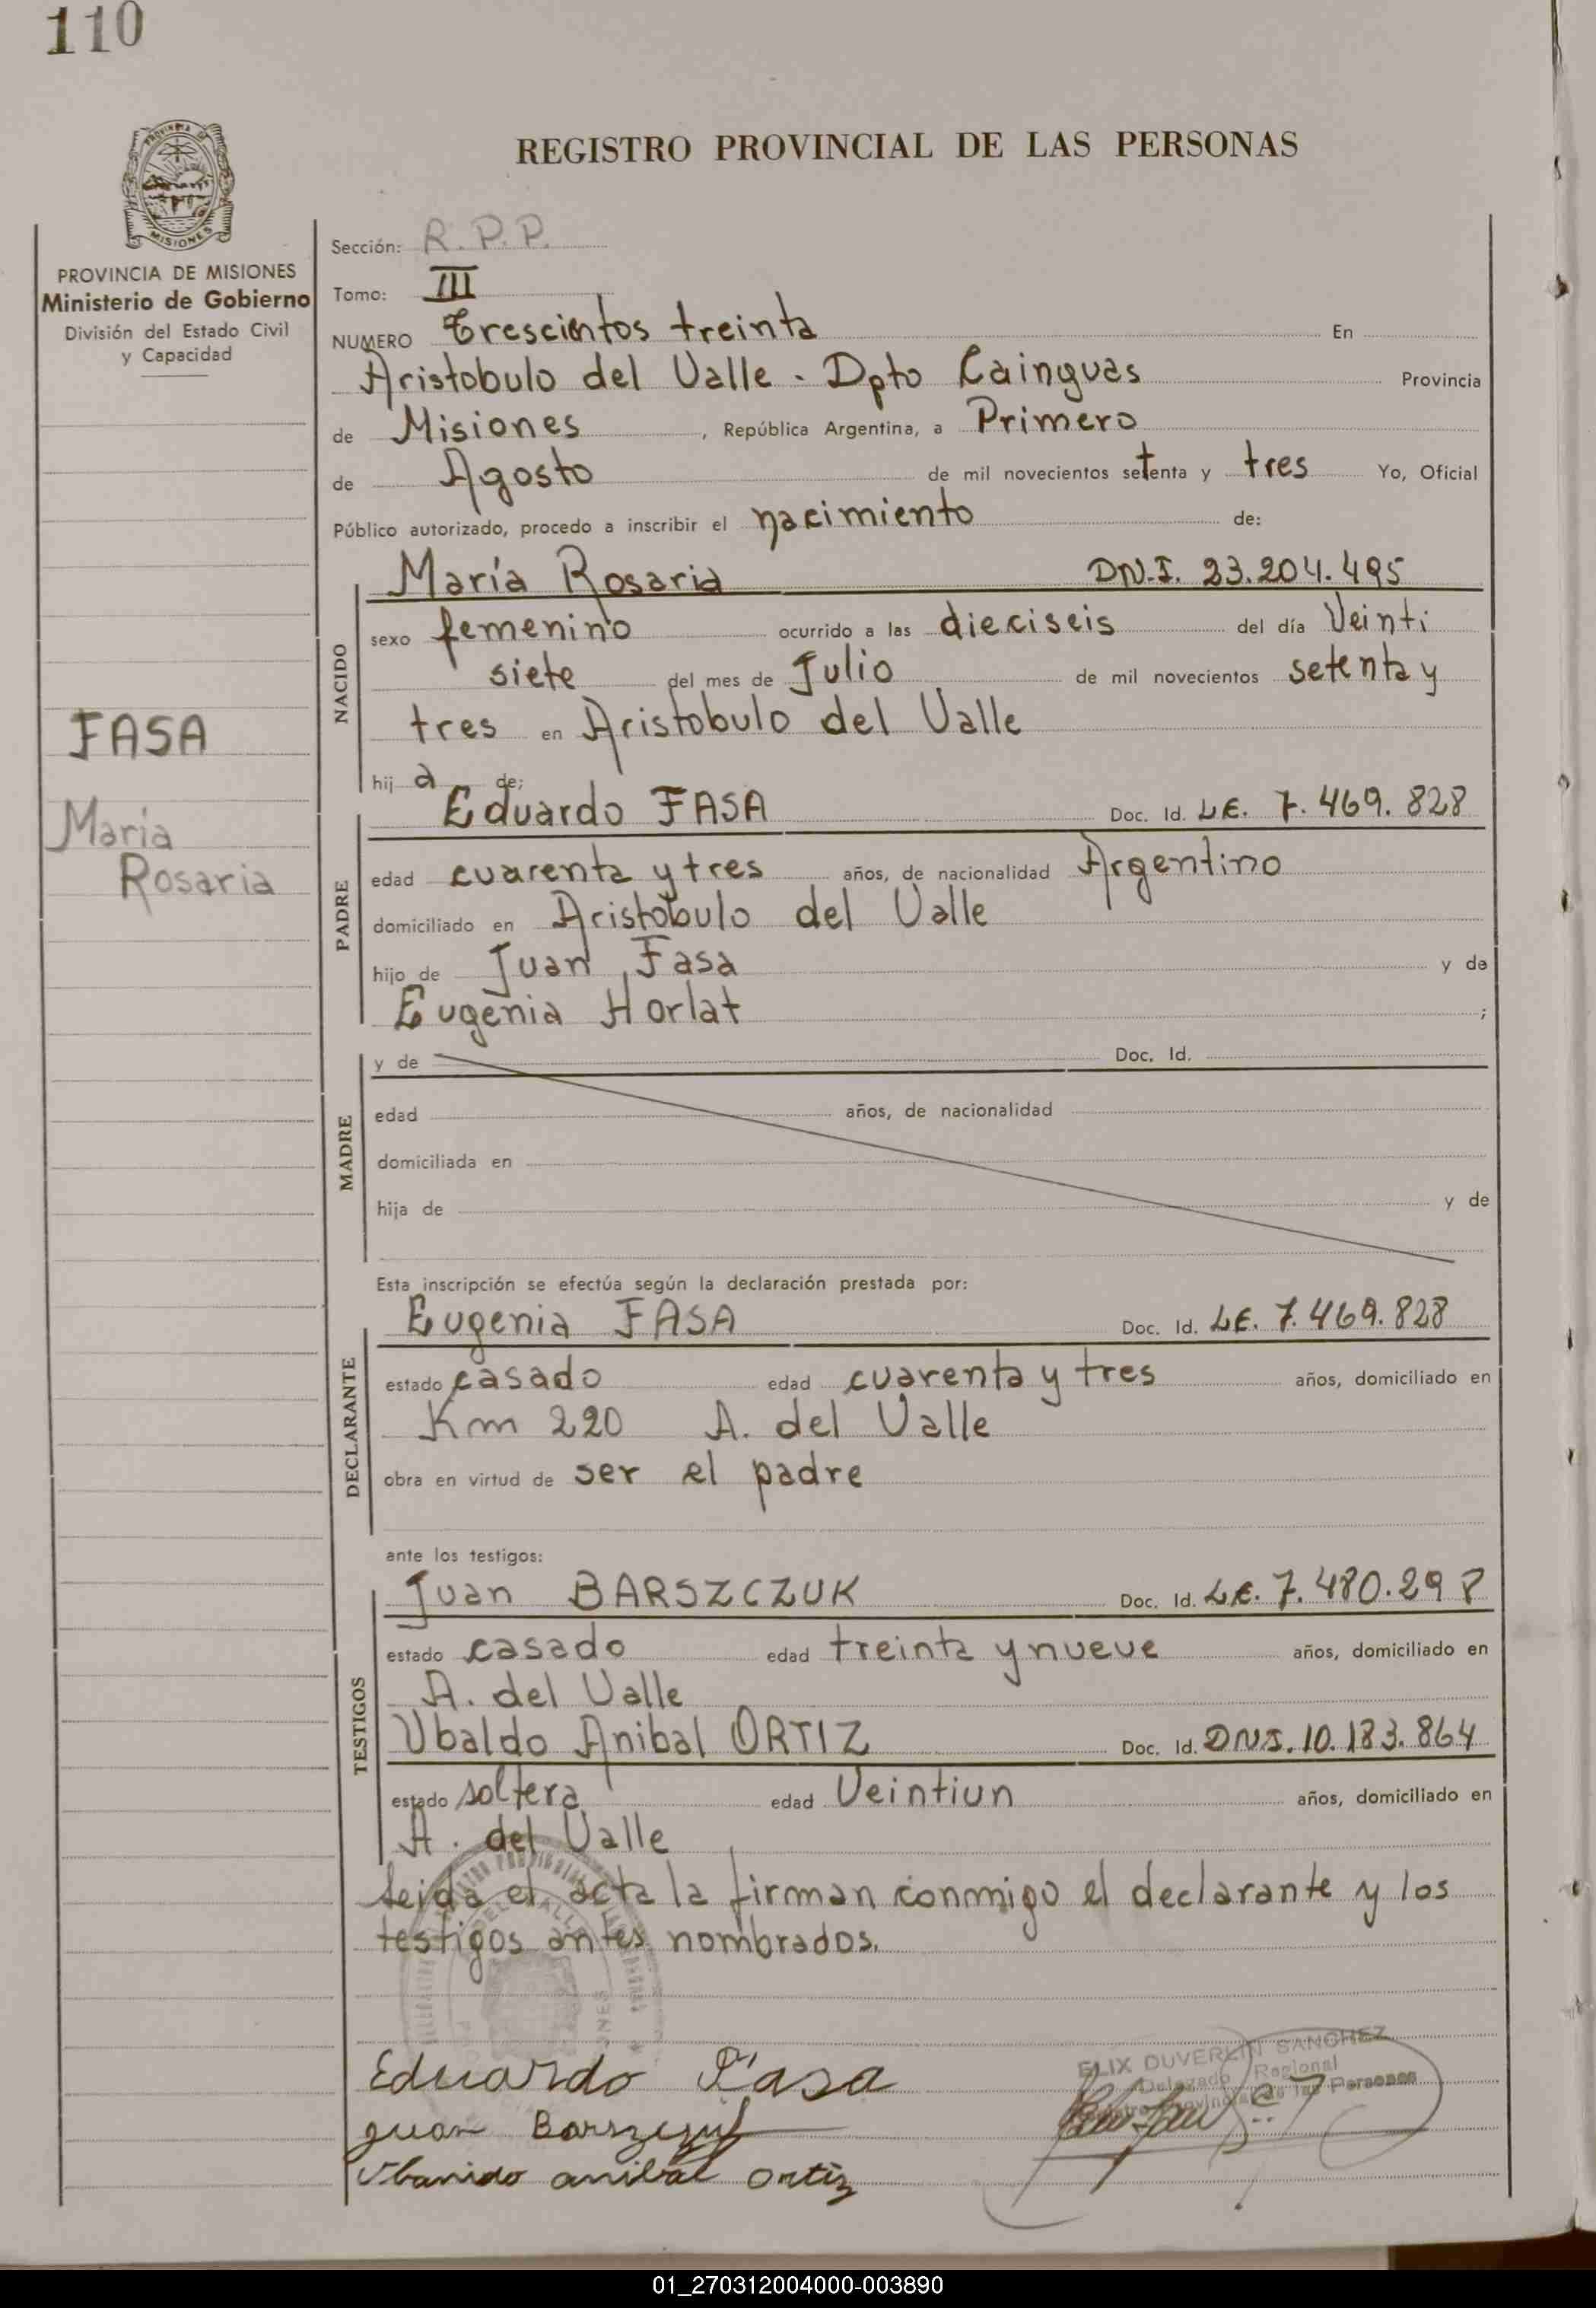 110
REGISTRO PROVINCIAL DE LAS PERSONAS
PROVINCIA DE MISIONES
Ministerio de Gobierno
División del Estado Civil
y Capacidad
FASA
María
Rosaria
Sección: R.P.P.
Tomo: III
NUMERO Trescientos treinta En
Aristobulo del Valle - Dpto Cainguas Provincia
de Misiones, República Argentina, a Primero
de Agosto de mil novecientos setenta y tres Yo, Oficial
Público autorizado, procedo a inscribir el nacimiento de:
NACIDO
María Rosaria DN.I. 23.204.495
sexo femenino ocurrido a las dieciseis del día Veinti
siete del mes de Julio de mil novecientos setenta y
tres en Aristobulo del Valle
hij a de;
PADRE
Eduardo FASA Doc. Id. LE. 7.469.828
edad cuarenta y tres años, de nacionalidad Argentino
domiciliado en Aristobulo del Valle
hijo de Juan Fasa y de
Eugenia Horlat ;
MADRE
y de Doc. Id.
edad años, de nacionalidad
domiciliada en
hija de y de
Esta inscripción se efectúa según la declaración prestada por:
DECLARANTE
Eugenia FASA Doc. Id. LE. 7.469.828
estado casado edad cuarenta y tres años, domiciliado en
Km 220 A. del Valle
obra en virtud de ser el padre
ante los testigos:
TESTIGOS
Juan BARSZCZUK Doc. Id. LE. 7.480.298
estado casado edad treinta y nueve años, domiciliado en
A. del Valle
Ubaldo Anibal ORTIZ Doc. Id. DNI. 10.183.864
estado soltera edad Veintiun años, domiciliado en
A. del Valle
Leida el acta la firman conmigo el declarante y los
testigos antes nombrados.
Eduardo Fasa
ELIX DUVERLIN SANCHEZ
Delegado Regional
Juan Barszczuk
anibal Ortiz
01_270312004000-003890